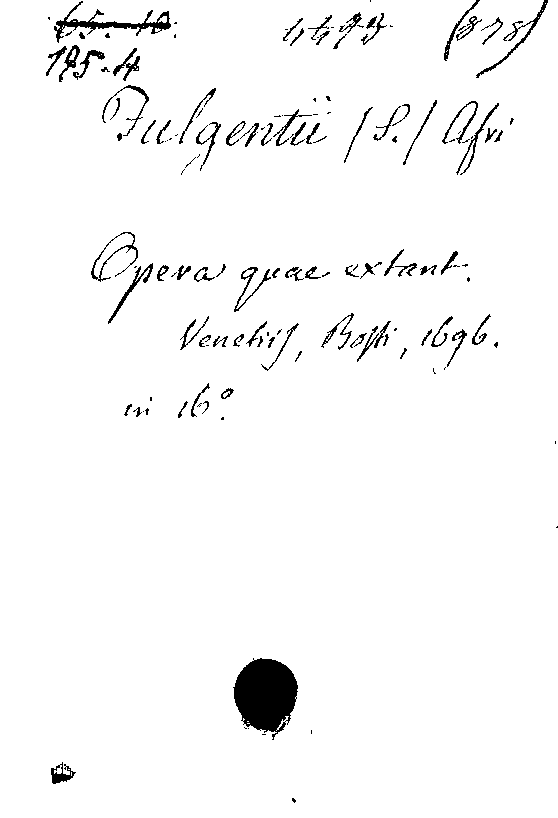 65. 10. 4493 (878)
195.4
Fulgentii (S.) Afri
Opera quae extant.
Venetiis, Bosti, 1696.
in 16°.